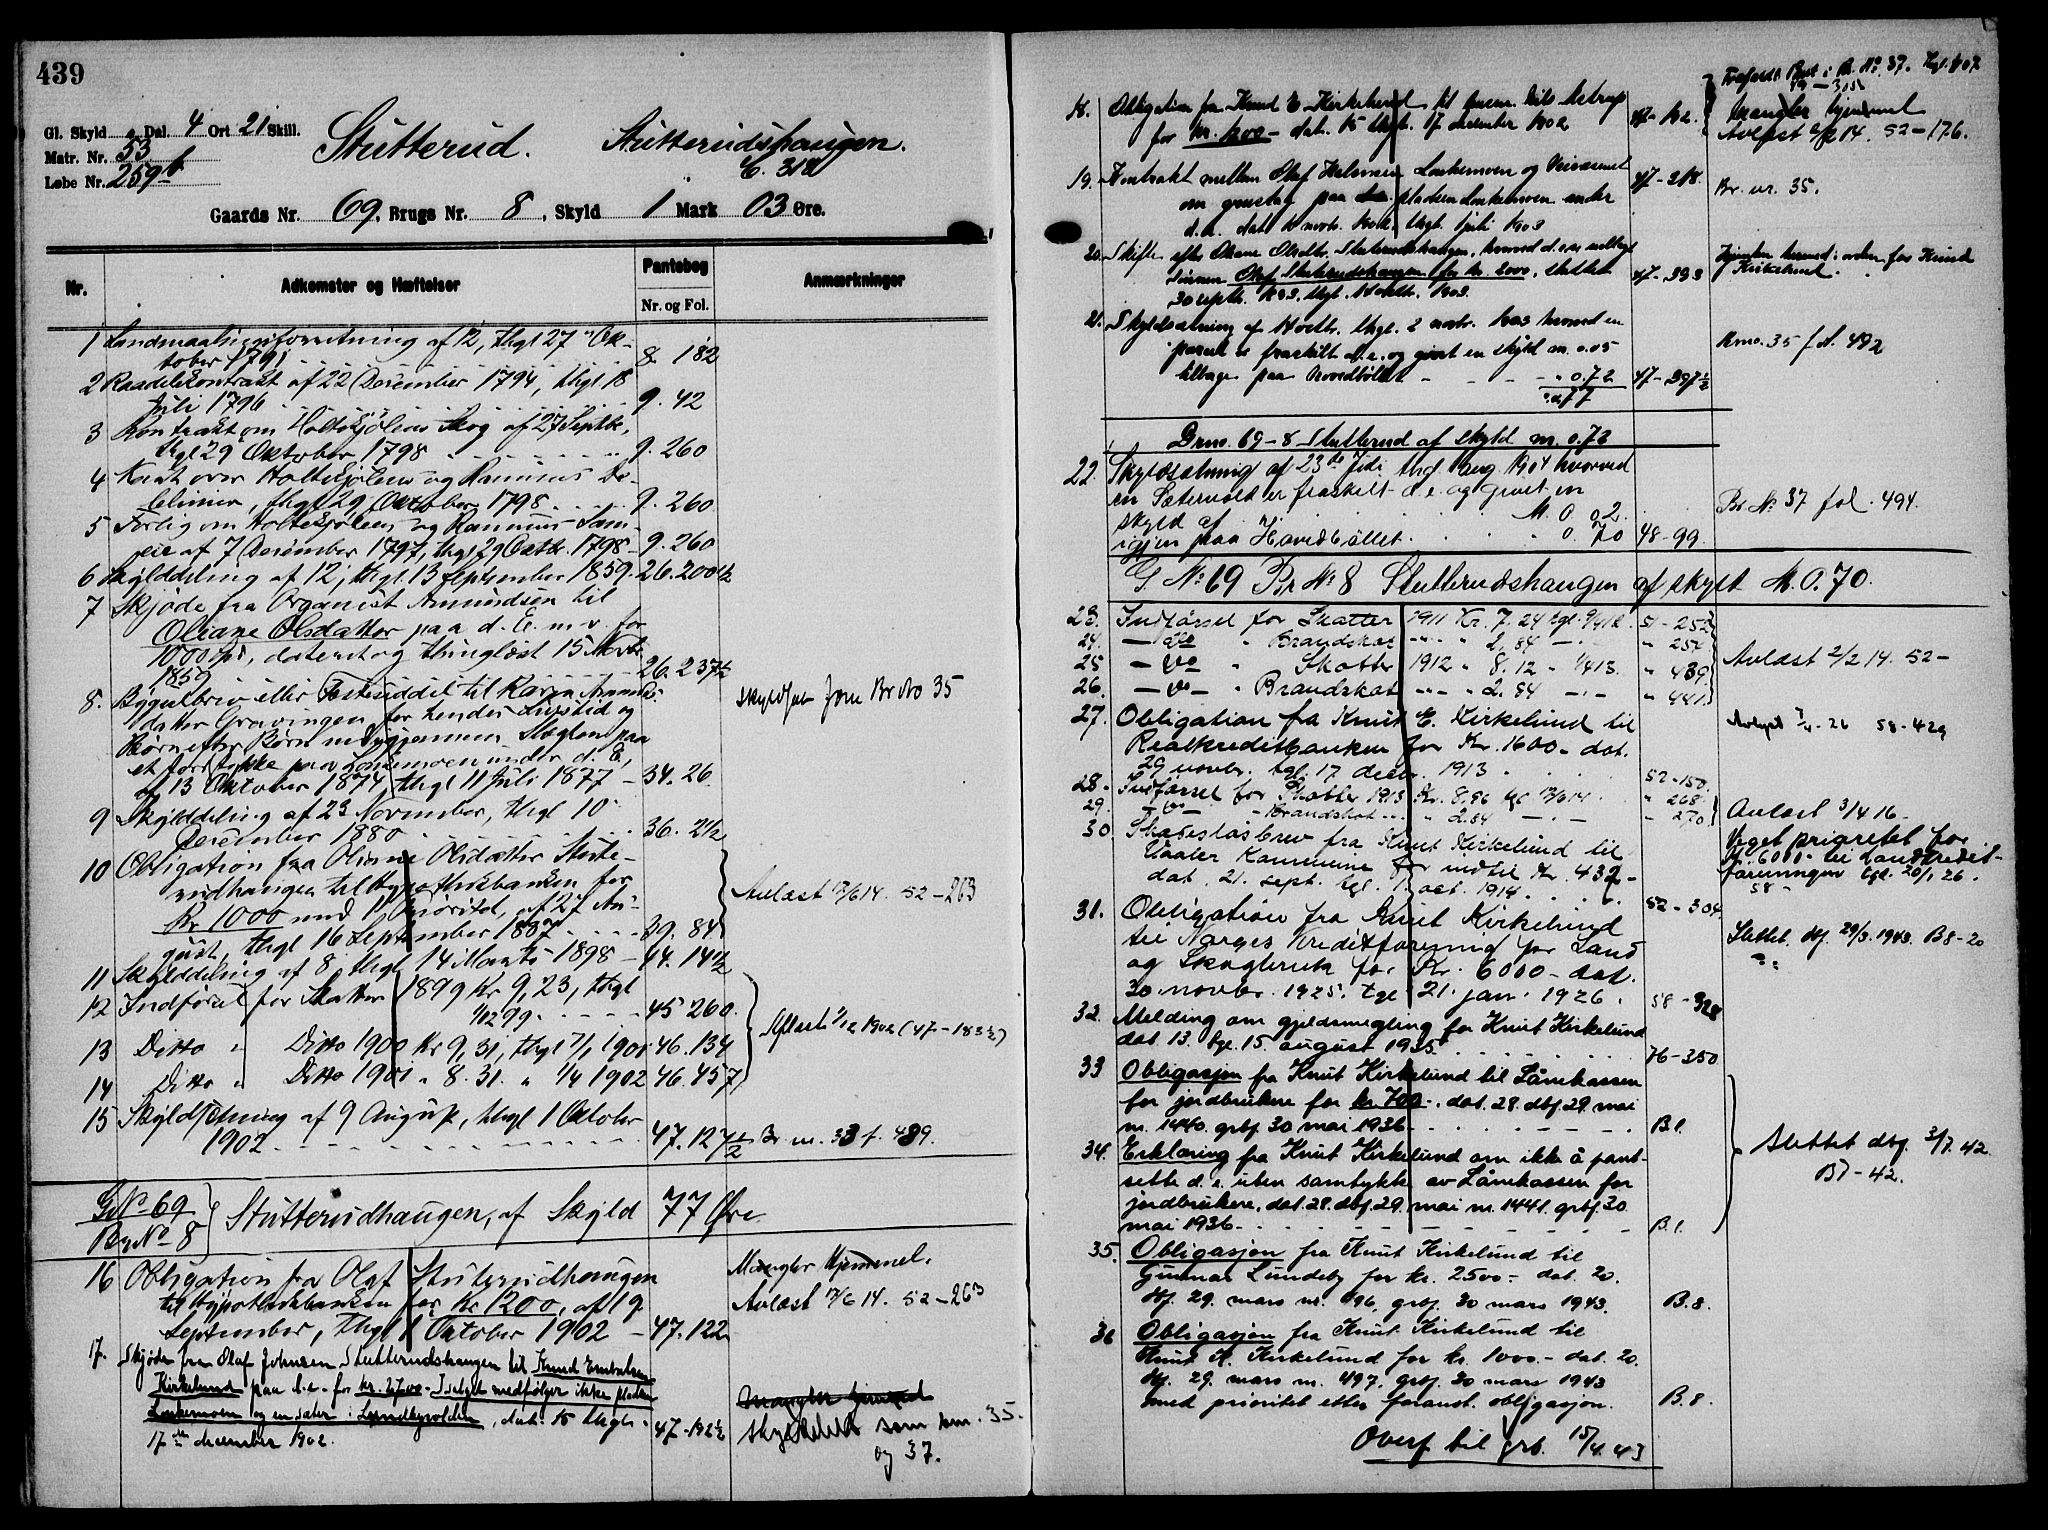 439
Gl. Skyld " Dal. 4 Ort 21 Skill.
Matr. Nr. 53
Løbe Nr. 259b
Stutterud. Stutterudshaugen.
C. 318
Gaards Nr. 69. Brugs Nr. 8, Skyld 1 Mark 03 Øre.
Nr. Adkomster og Hæftelser Pantebog Anmærkninger
Nr. og Fol.
1 Landmaalningsforretning af 12, thgl 27 Ok-
tober 1791 8. 182
2 Raadelskontrakt af 22 December 1794, thgl 18
Juli 1796 9. 42
3 Kontrakt om Holtskjølens Skog af 27 Septbr.
thgl 29 Oktober 1798 9. 260
4 Kart over Holtskjølens og
thgl 29 Oktober 1798 9. 260
5 Forlig om Holtskjølens og Sam-
eie af 7 December 1797, thgl 29 Octbr. 1798 9. 260
6 Skylddeling af 12, thgl. 13 September 1859. 26. 200 1/2
7 Skjøde fra Organist Amundsen til
Oliane Olsdatter paa d. E. m. v. for
1000 Spd, dateret og thinglæst 15 Novbr.
1859 26. 237 1/2
8. Bygselbrev eller Fæsteseddel til Karen Amunds- Skyldsat som Br No 35
datter Gravingen for hendes Livstid og
Børn efter Børn nedigjennem Slægten paa
et jordstykke paa Lonkemoen under d. E,
af 13 Oktober 1874, thgl 11 Juli 1877 34. 26
9 Skylddeling af 23 November, thgl 10
December 1880 36. 2 1/2
10 Obligation fra Oliane Olsdatter Stutte-
rudhaugen til Hypothekbanken for
Kr 1000 med 1 Prioritet, af 27 Au-
gust, thgl 16 September 1887 39. 84 Avlæst 12/6 14. 52-263
11 Skylddeling af 8, thgl 14 Marts 1898 44. 141 1/2
12 Indførsel for Skatter 1899 Kr 9,23, thgl
1/12 99 45 260.
13 Ditto " Ditto 1900 Kr 9,31, thgl 7/1 1901 46. 134 Aflæst 1/12 1902 (47-183 1/2)
14 Ditto " Ditto 1901 " 8.31. " 1/4 1902 46. 457
15 Skyldsetning af 9 August, thgl 1 Oktober
1902 47. 127 1/2 Br. nr. 33 f. 489.
G No 69
Br No 8 Stutterudhaugen, af Skyld 77 Øre
16 Obligation fra Olaf Stutterudhaugen Mangler Hjemmel.
til Hypothekbanken for Kr 1200, af 19 Avlæst 12/6 14. 52-263
September, thgl 1 Oktober 1902 47. 122
17. Skjøde fra Olaf Johnsen Stutterudshaugen til Knud Embretsen
Kirkelund paa d.e. for kr. 2700 - I salget medfølger ikke pladsen
Lonkemoen og en sæter i, dat. 15 thgl. Mangler hjemmel
17de december 1902. 47-192 1/2 Skyldelt som brn. 35.
og 37.
18. Obligation fra Knud E Kirkelund til
for kr. 1200 - dat. 15 thgl. 17 december 1902 47-192. Mangler hjemmel
Avlæst 14. 52-176.
19. Kontrakt mellem Olaf Halvorsen Lonkemoen og Veivæsenet
om grustag paa pladsen Lonkemoen under
d.e. dat. 10 novbr. 1902, thgl. 1 juli 1903 47-318. Br. nr. 35.
20. Skifte efter Oliane Olsdtr. Stutterudshaugen, hvorved d.e. er udlagt
sønnen Olaf Stutterudshaugen for kr. 2000, sluttet
30 septbr. 1903, thgl. 14 oktbr. 1903. 47-393 Hjemlen hermed i orden for Knud
Kirkelund.
21. Skyldsætning af 14 octbr. thgl. 2 novbr. 1903 hvorved en
parcel er fraskilt d.e. og givet en skyld m. 0.05 Brno. 35 fol. 492
tilbage paa hovedbølet " 0.72 47-397 1/2
0.77
Brno. 69-8 Stutterud af skyld m. 0.72
22. Skyldsætning af 23de Juli thgl 1 aug. 1904 hvorved
en Sætervold er fraskilt d.e. og givet en Br No 37 fol. 494.
skyld af M. 0.02.
igjen paa Hovedbøllet " 0.70 48-99
G No 69 Br No 8 Stutterudshaugen af skyld M. 0.70.
23. Indførsel for Skatter 1911 Kr. 7.24 tgl. 9/4 12. 51-252
24. - do - " Brandskat " 2,84 " 254
25 - do " Skatter 1912 " 8,12 " 1/4 13. " 439 Avlæst 2/2 14. 52-
26. - do - " Brandskat " 2.84 " 441
27. Obligation fra Knut E. Kirkelund til
Realkreditbanken for Kr. 1600- dat. 58-429
29 novbr. tgl. 17 decbr. 1913 52-150.
28. Indførsel for Skatter 1913 Kr. 8,96 tgl 14 " 268
29. - do - Brandskat " 2.84 " 270 Avlæst 3/4 16-
30. Skadesløsbrev fra Knut Kirkelund til Veget prioritet for
Vaaler Kommune for indtil Kr. 432- Kr. 6000- til Landkredit-
dat. 21. sept. tgl. 1. oct. 1914. 52-304 foreningen tgl. 20/1 26.
58-
31. Obligation fra Knut Kirkelund
til Norges Kreditforening for Land Slettet dbf. 29/3. 1943. B8-20
og Skogbruk for Kr. 6000- dat.
30 novbr. 1925. tgl 21. jan. 1926. 58-328
32. Melding om gjeldsmegling for Knut Kirkelund
dat. 13. tgl. 15. august 1935 76-350
33 Obligasjon fra Knut Kirkelund til Lånekassen
for jordbrukere for kr. 700-, dat. 28. dbf. 29. mai
nr. 1440. grbf. 30 mai 1936 B1.
34. Erklæring fra Knut Kirkelund om ikke å pant- Slettet dbf. 3/7. 42
sette d.e. uten samtykke av Lånekassen for B7-42.
jordbrukere, dat. 28. dbf. 29. mai nr. 1441. grbf. 30
mai 1936 B1.
35. Obligasjon fra Knut Kirkelund til
Gunnar Lundeby for kr. 2500- dat. 20.
dbf. 29. mars nr. 496, grbf. 30 mars 1943. B.8.
36 Obligasjon fra Knut Kirkelund til
Knut K. Kirkelund for kr. 1000.- dat. 20.
dbf. 29. mars nr. 497, grbf. 30 mars 1943
med prioritet etter foranst. obligasjon. B.8.
Overf til grb. 15/4. 43